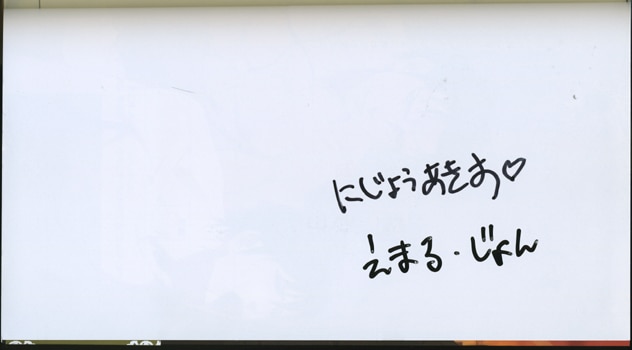 にじょうあきお♡
えまる・じょん